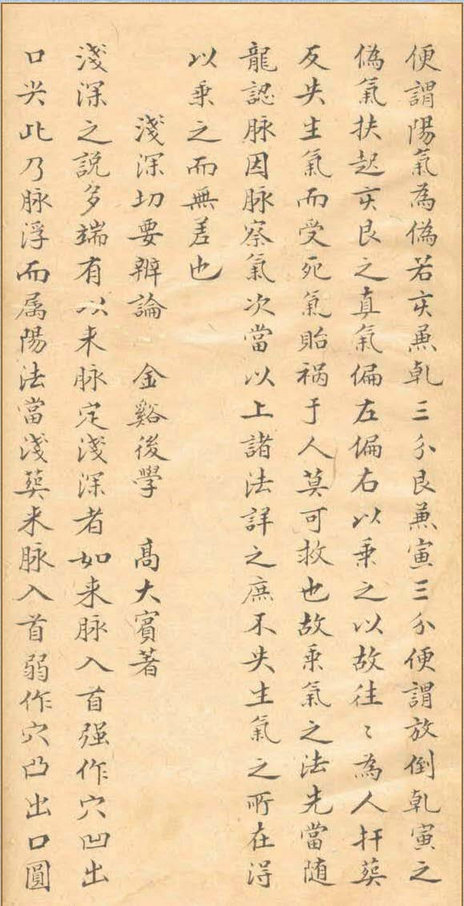 便謂陽氣為偽若亥兼乹三分艮兼寅三分便謂放倒乹寅之
偽氣扶起亥艮之真氣偏左偏右以乗之以故往〻為人扞葬
反失生氣而受死氣貽禍于人莫可救也故乗氣之法先當随
龍認脉因脉察氣次當以上諸法詳之庶不失生氣之所在得
以乗之而無差也
淺深切要辨論 金谿後學 髙大賓著
淺深之説多端有以来脉定淺深者如来脉入首强作穴凹出
口尖此乃脉浮而属陽法當淺葬来脉入首弱作穴凸出口圓